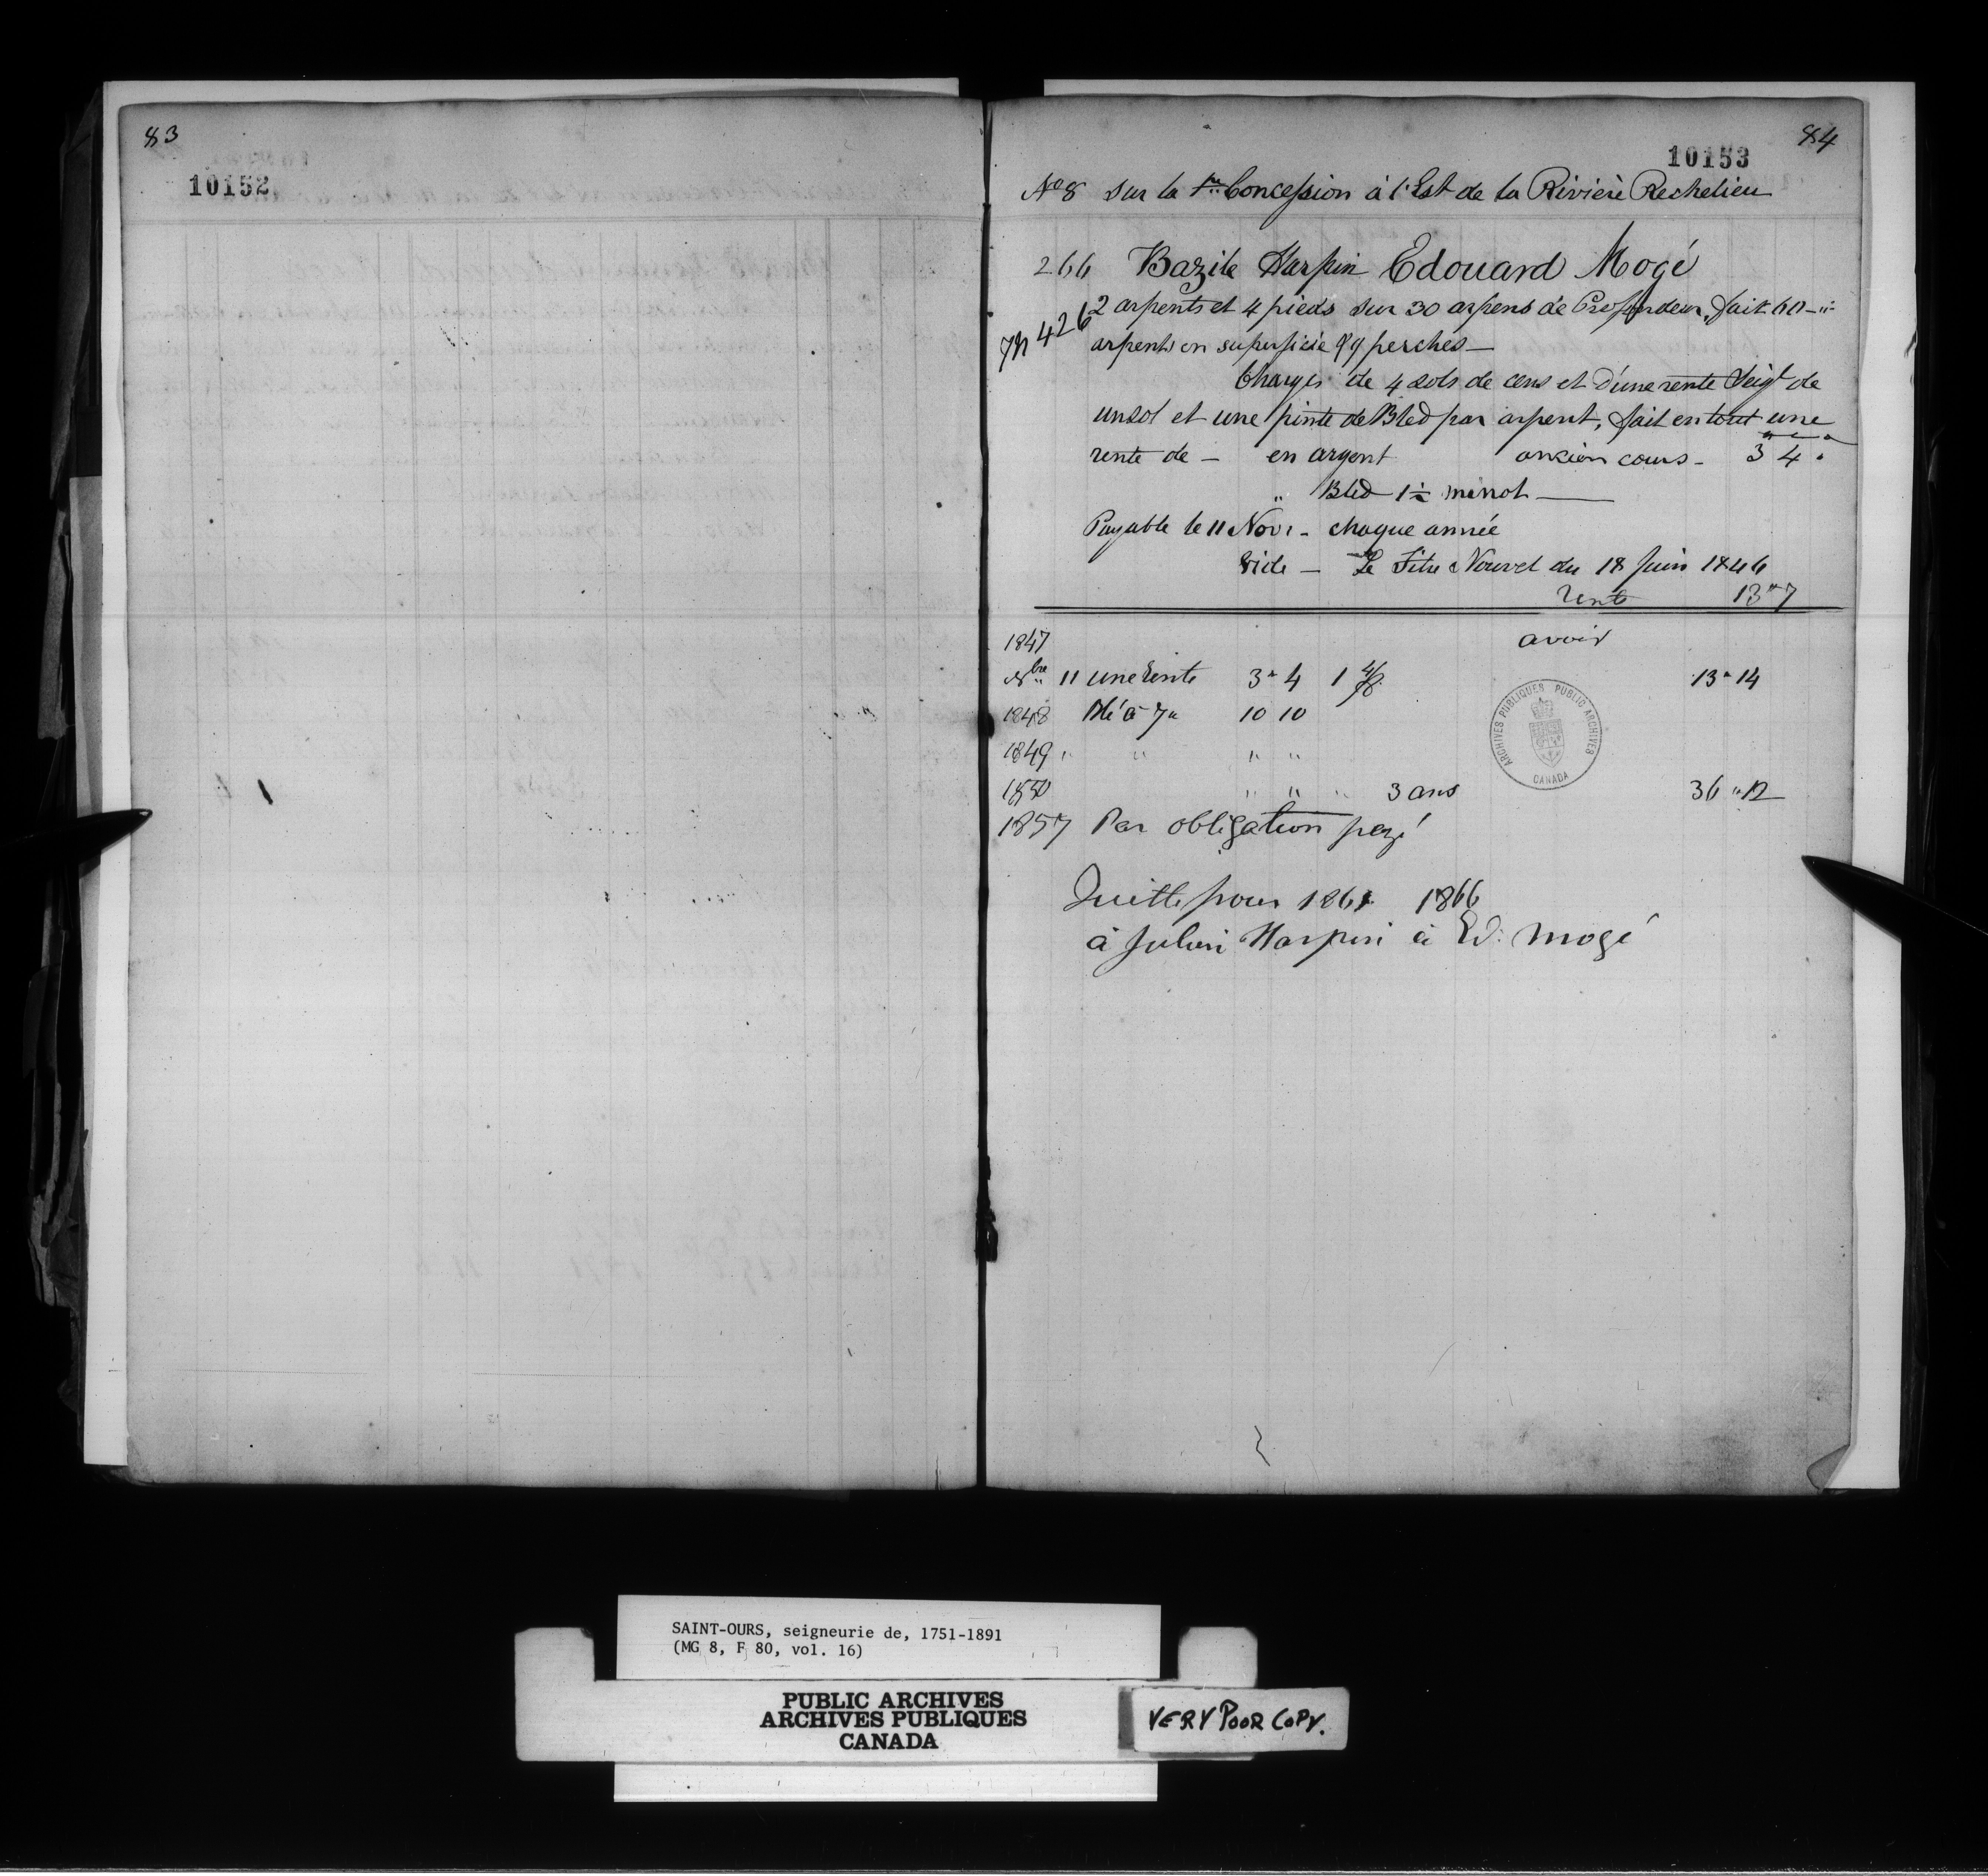 83
10152
84
10153
No 8 sur la 1re Concession à l'Est de la Rivière Rechelieu
266 Bazile Harpin Edouard Mogé
426
2 arpents et 4 pieds sur 30 arpens de Profondeur, fait 60
arpents en superficie 99 perches
Chargés de 4 sols de cens et d'une rente Seigl de
un sol et une pinte de Bled par arpent, fait en tout une
rente de - en argent ancien cours - 3 4 "
" Bled 1½ minot
Payable le 11 Novr - chaque année
Vide - Le Titre Nouvel du 18 Juin 1846
rente 13 " 7
1847 avoir
Nbre 11 une rente 3 " 4 1 13 " 14
1848 Blé à 7 " 10 10
1849 " " " "
1850 " " " 3 ans 36 " 12
1857 Par obligation payé
Quitte pour 1861 1866
à Julien Harpin à Ed: Mogé
ARCHIVES PUBLIQUES PUBLIC ARCHIVES
CANADA
SAINT-OURS, seigneurie de, 1751-1891
(MG 8, F 80, vol. 16)
PUBLIC ARCHIVES
ARCHIVES PUBLIQUES
CANADA
VERY POOR COPY.